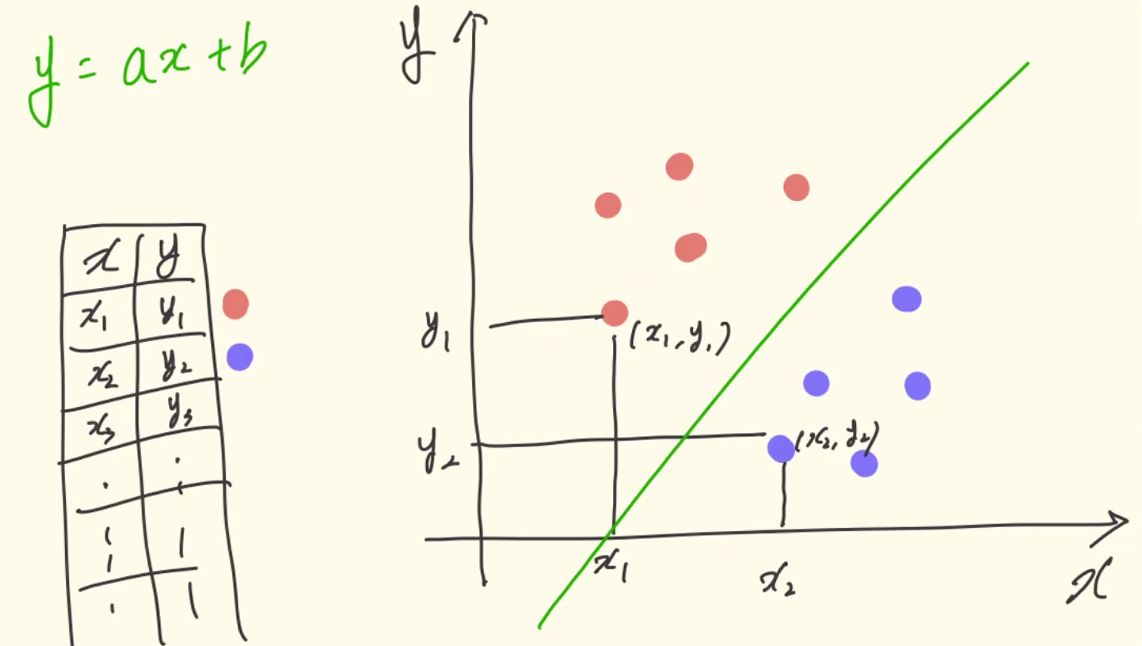 y = ax + b
x y
x₁ y₁
x₂ y₂
x₃ y₃
y
y₁
(x₁, y₁)
y₂
(x₂, y₂)
x₁
x₂
x